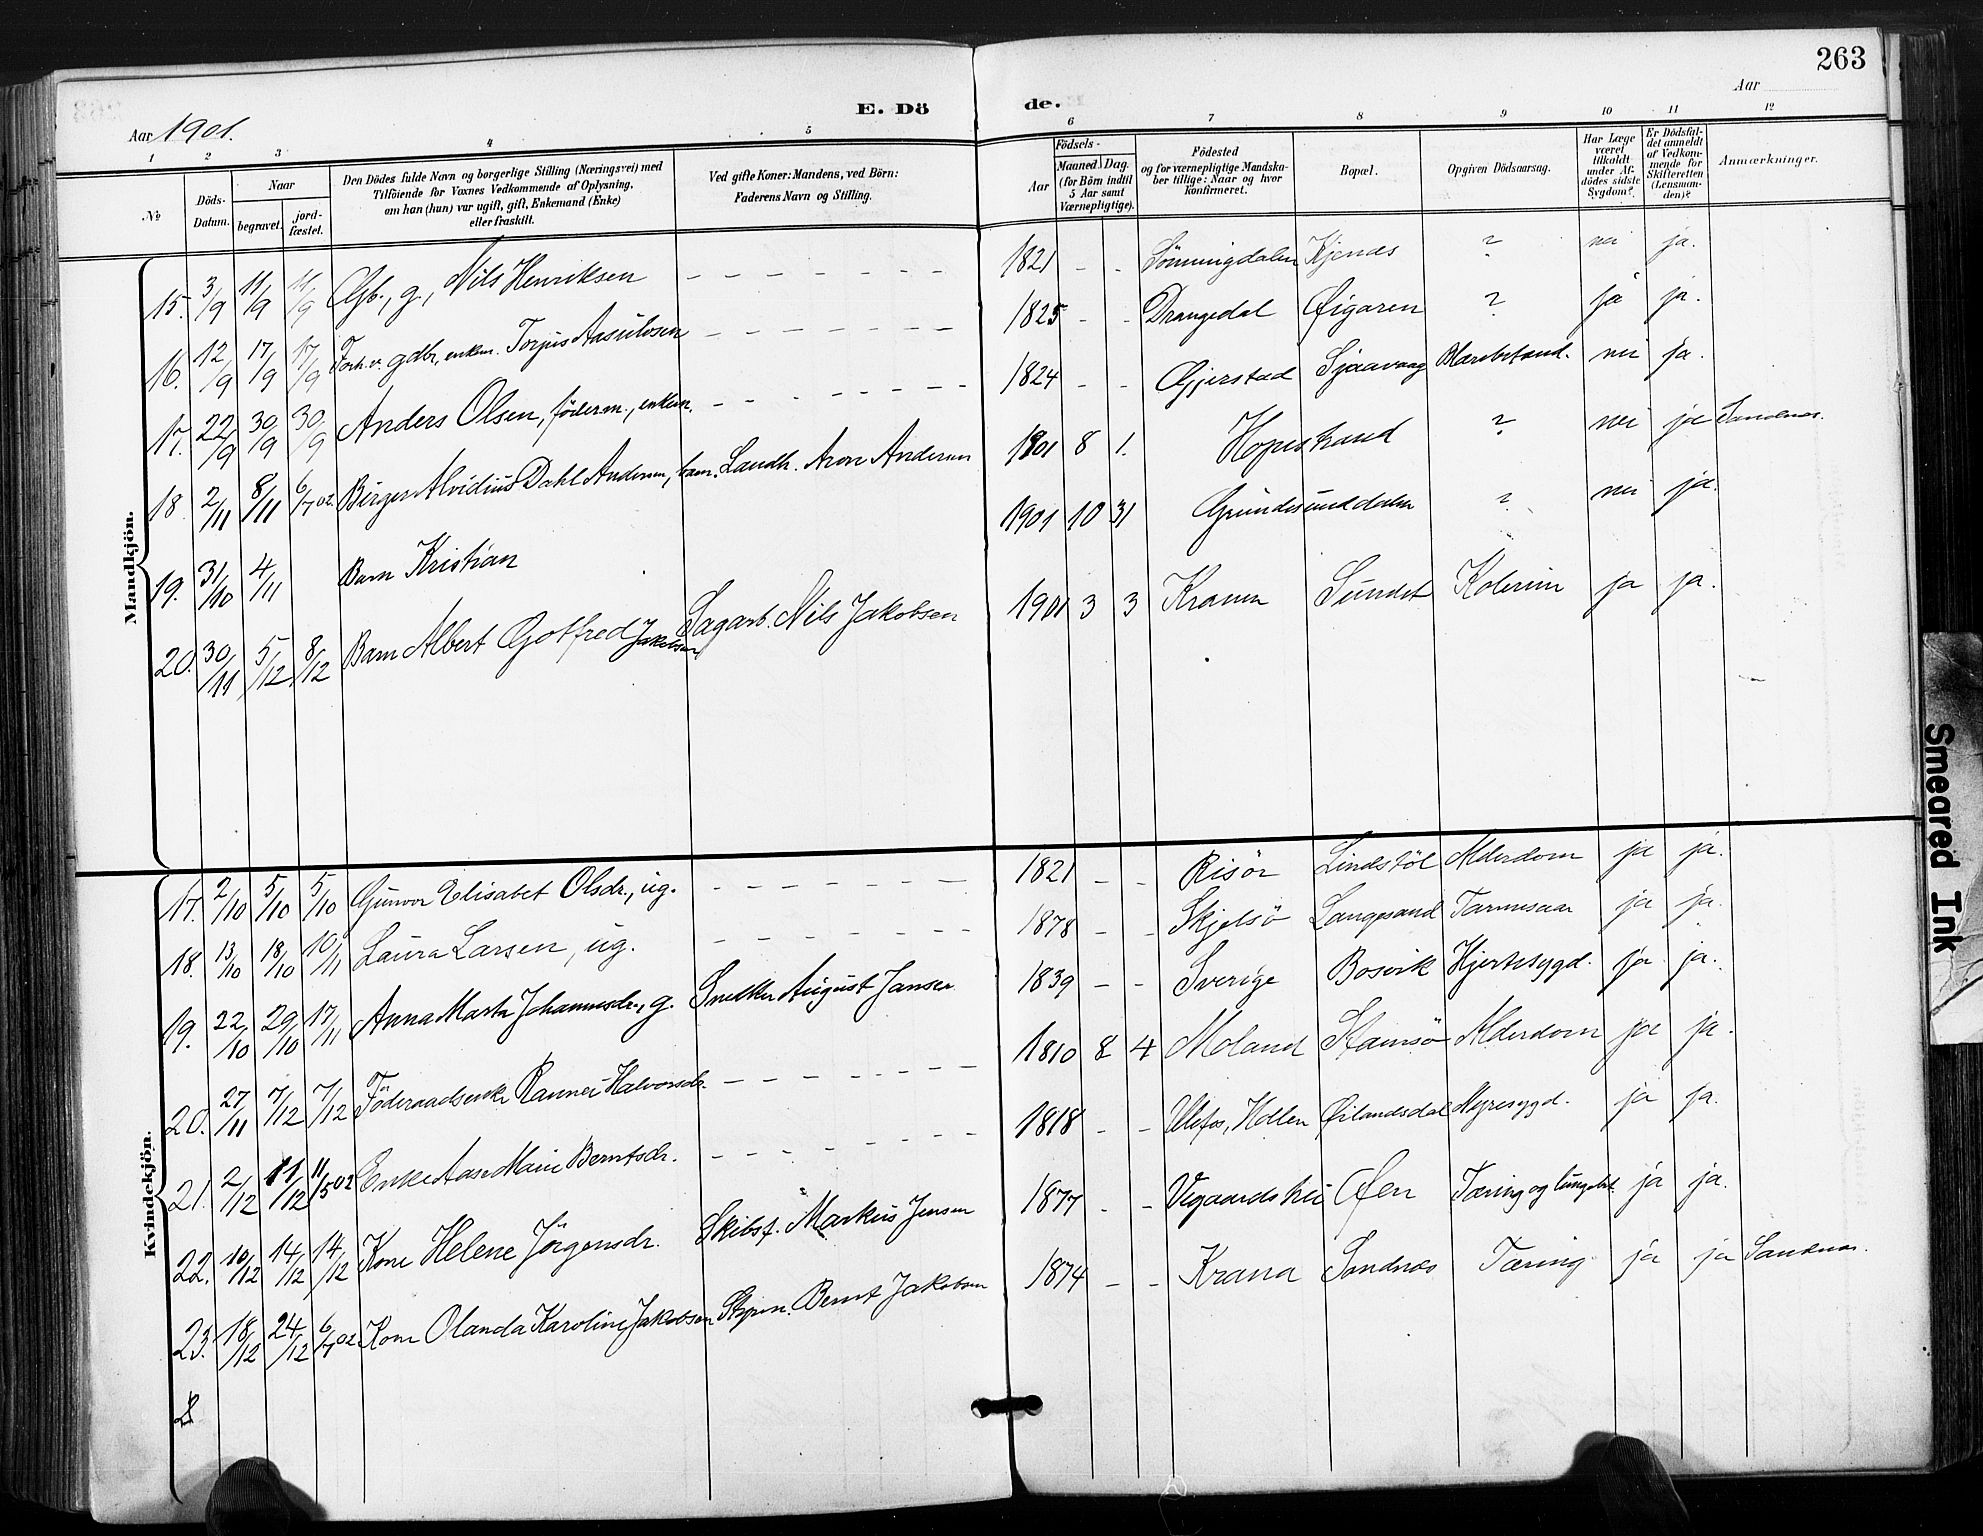 263
E. Döde.
Aar 1901.
Aar
1 2 3 4 5 6 7 8 9 10 11 12
No
Döds-Datum.
Naar
begravet.
jord-fæstet.
Den Dödes fulde Navn og borgerlige Stilling (Næringsvei) med
Tilföiende for Voxnes Vedkommende af Oplysning,
om han (hun) var ugift, gift, Enkemand (Enke)
eller fraskilt.
Ved gifte Koner: Mandens, ved Börn:
Faderens Navn og Stilling.
Födsels-
Aar
Maaned. Dag.
(for Börn indtil
5 Aar samt
Værnepligtige).
Födested
og for værnepligtige Mandska-
ber tillige: Naar og hvor
konfirmeret.
Bopæl.
Opgiven Dödsaarsag.
Har Læge
været
tilkaldt
under Af-
dödes sidste
Sygdom?
Er Dödsfal-
det anmeldt
af Vedkom-
mende for
Skifteretten
(Lensman-
den)?
Anmærkninger.
Mandkjön.
15. 3/9 11/9 11/9 Gb., g., Nils Henriksen - - - - - - - 1821 - - Sönningdalen Kjendes ? nei ja.
16. 12/9 17/9 17/9 Forh.v. gdbr., enkem. Torjus Aasulvsen - - - - - - - 1825 - - Drangedal Øigaren ? ja ja.
17. 22/9 30/9 30/9 Anders Olsen, föderm., enkem. - - - - - - - 1824 - - Gjerstad Sjaavaag Blærebetænd. nei ja.
18 2/11 8/11 6/7 02. Birger Alvidius Dahl Andersen, barn. Landh. Aron Andersen 1901 8 1. Hopestrand ? nei ja Sandnæs.
19. 31/10 4/11 Barn Kristian 1901 10 31 Grundesunddalen ? nei ja.
20. 30/11 5/12 8/12 Barn Albert Gotfred Jakobsen Sagarb. Nils Jakobsen 1901 3 3 Kranna Sundet Kolerin ja ja.
Kvindekjön.
17. 2/10 5/10 5/10 Gunvor Elisabet Olsdr., ug. - - - - - - - 1821 - - Risör Lindstöl Alderdom ja ja.
18. 13/10 18/10 10/11 Laura Larsen, ug. - - - - - - - 1878 - - Skjelsö Langesand Tarmesaar ja ja.
19. 22/10 29/10 17/11 Anna Marta Johannesdr., g. Snedker August Jansen 1839 - - Sverige Bosvik Hjertesygd. ja ja.
20. 27/11 7/12 7/12 Föderaadsenke Rannei Halvorsdr. - - - - - - - 1810 8 4 Moland Stamsö Alderdom ja ja.
21. 2/12 11/12 11/5 02 Enke Aase Marie Berntsdr. - - - - - - - 1818 - - Ulefos, Hollen Øilandsdal Nyresygd. ja ja.
22. 10/12 14/12 14/12 Kone Helene Jörgensdr. Skibsf. Markus Jensen 1877 - - Vegaardshei Øen Tæring og lungebet. ja ja.
23. 18/12 24/12 6/7 02 Kone Olanda Karoline Jakobsen Styrm. Bernt Jakobsen 1874 - - Krana Sandnæs Tæring ja ja Sandnæs.
Smeared Ink